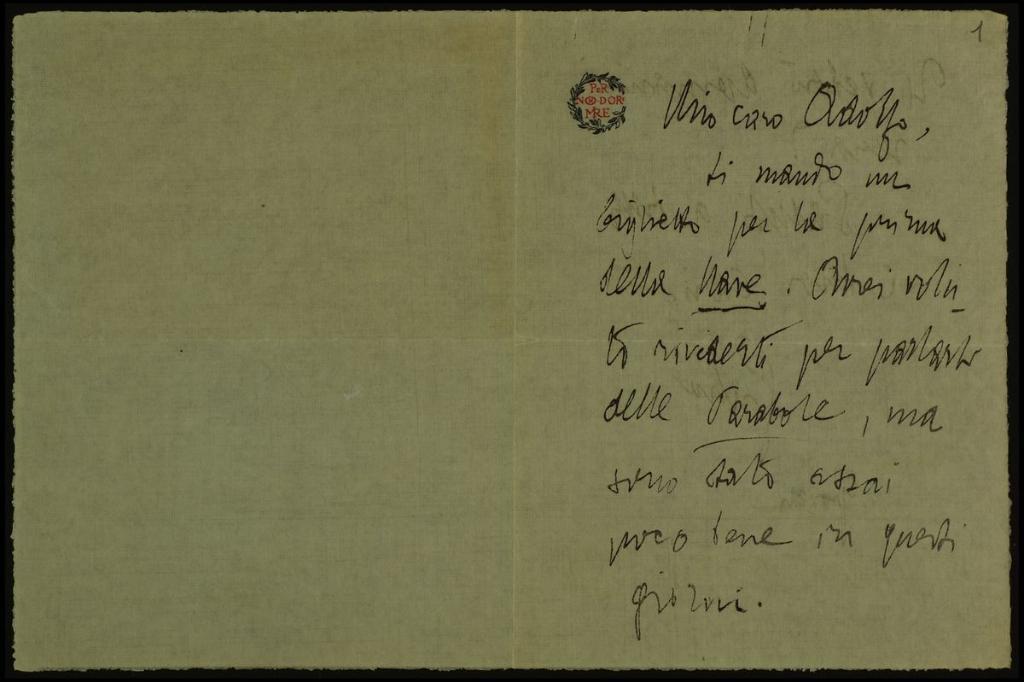 1
PER
NON DOR
MIRE
Mio caro Adolfo,
ti mando un
biglietto per la prima
della Nave. Avrei volu-
to rivederti per parlarti
delle Parabole, ma
sono stato assai
poco bene in questi
giorni.